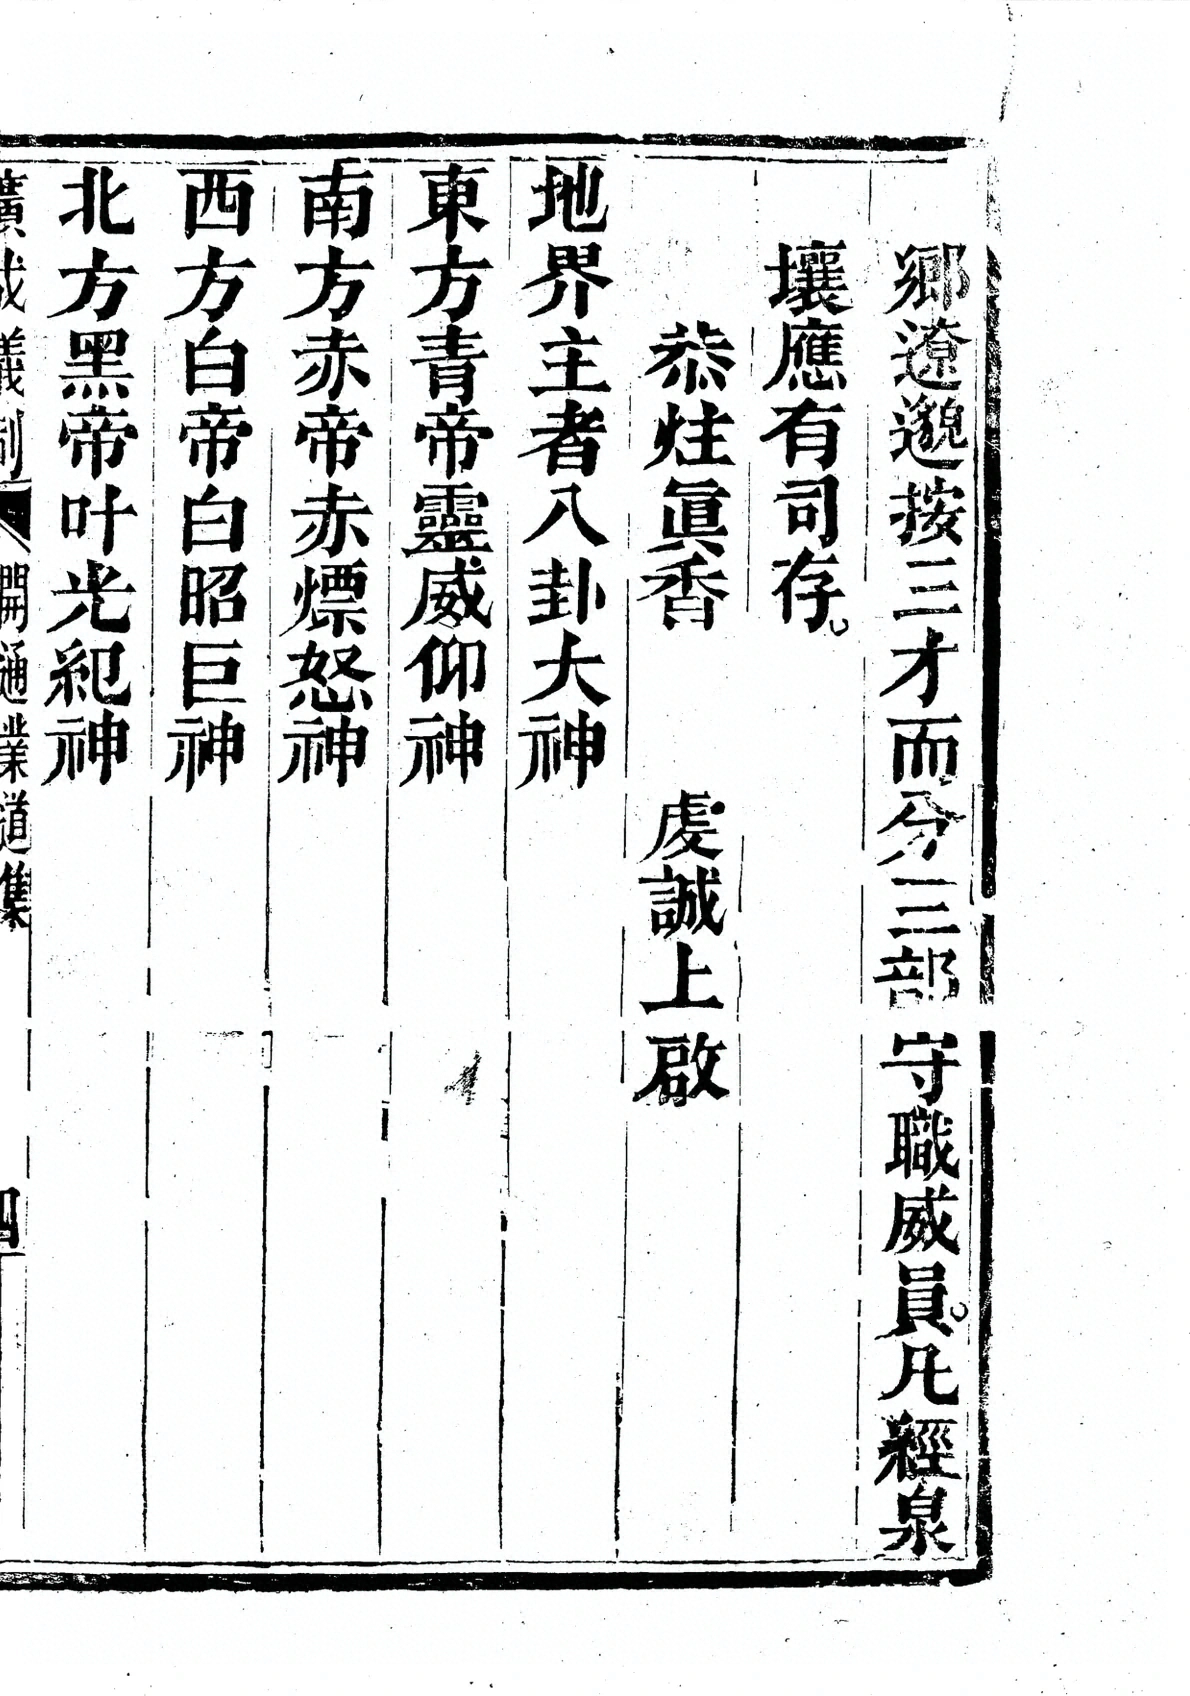 鄉遼邈按三才而分三部守職威員。凡經泉
壤應有司存。
恭炷眞香　虔誠上啟
地界主者八卦大神
東方青帝靈威仰神
南方赤帝赤熛怒神
西方白帝白昭巨神
北方黑帝叶光紀神
廣成儀制　開通業道集　四